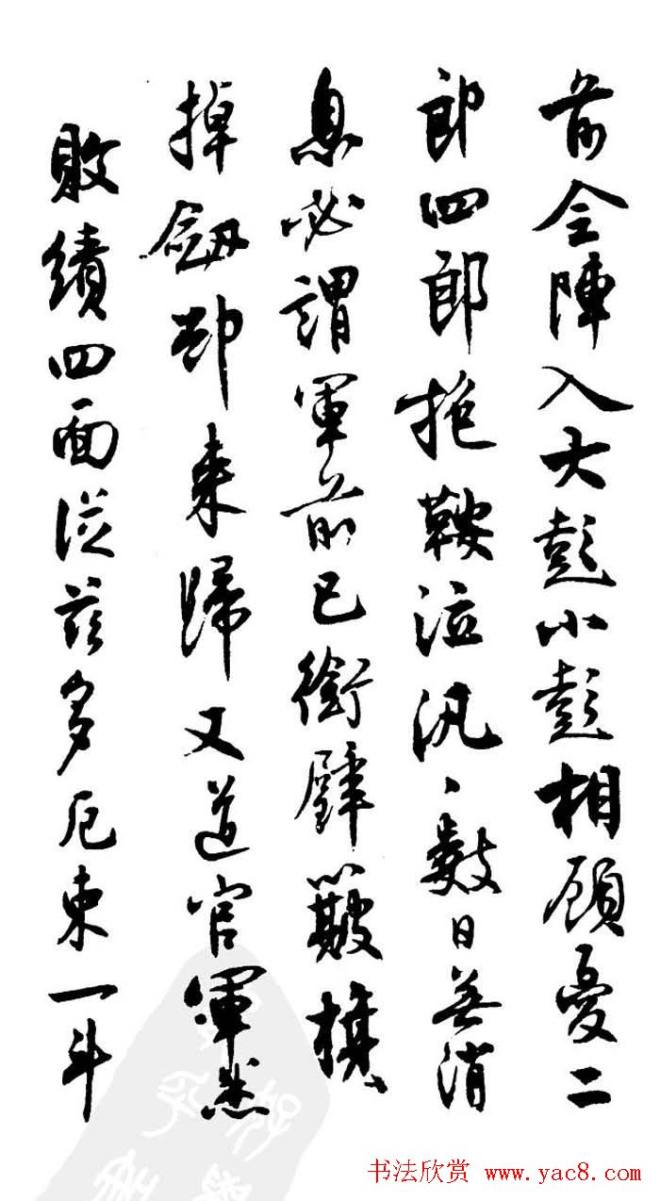 前全陣入大彭小彭相顧憂二
郎四郎抱鞍泣汎〻數日無消
息必謂軍前已銜璧簸旗
掉劍却来歸又道官軍悉
敗績四面從茲多厄束一斗
书法欣赏 www.yac8.com